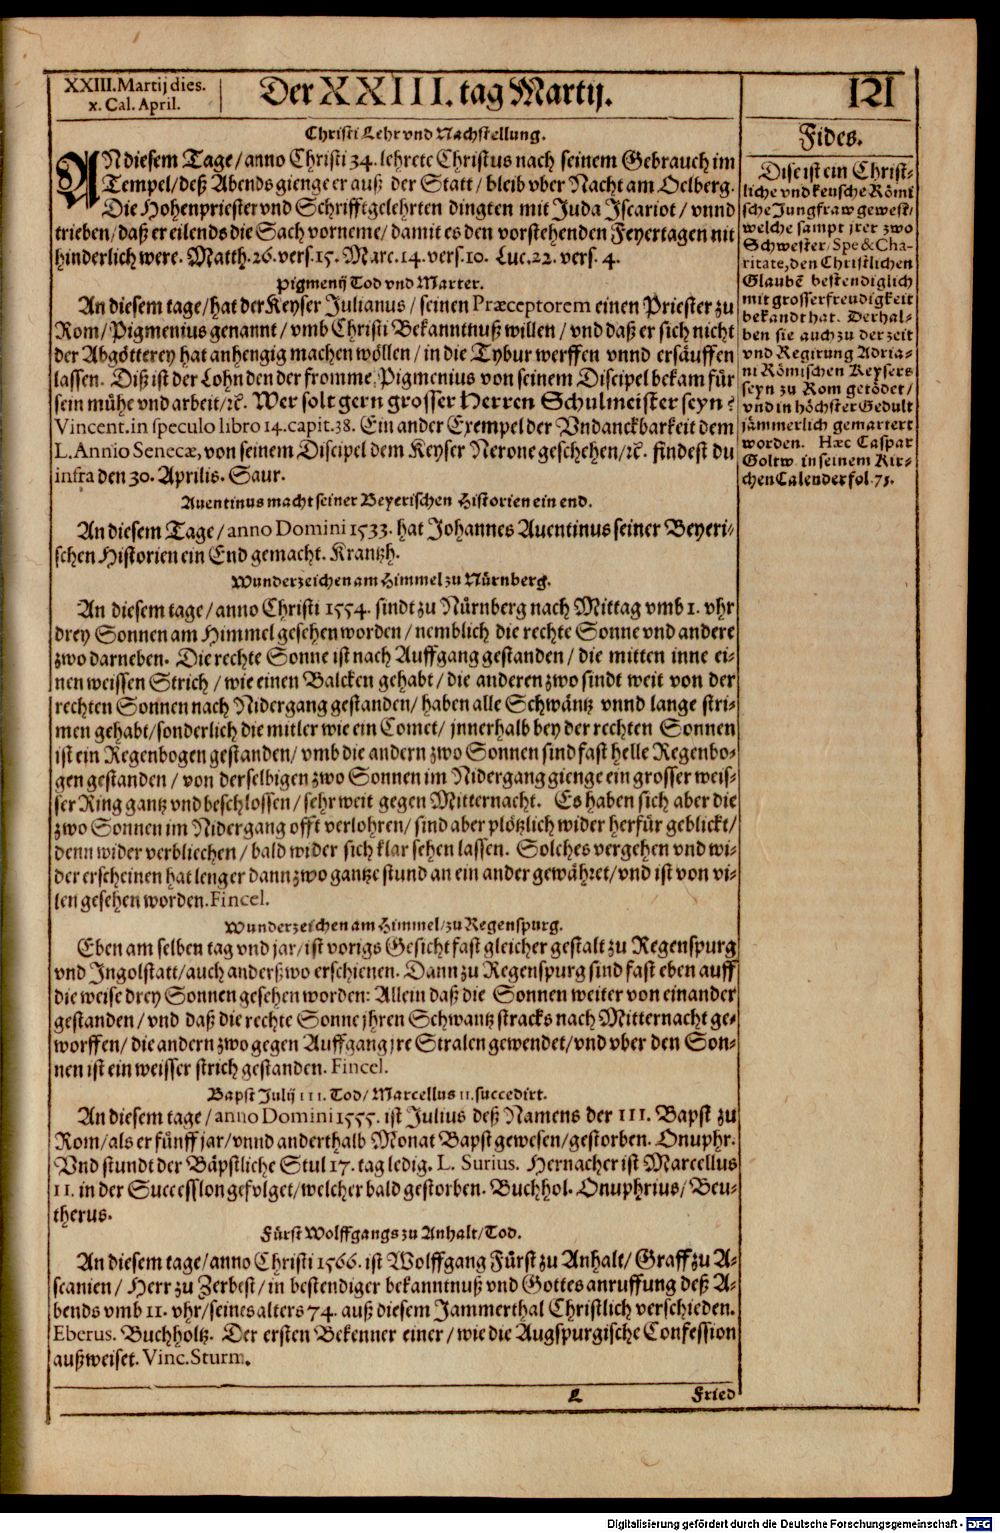 XXIII. Martij dies.
x. Cal. April.
Der XXIII. tag Martij.
121
Christi Lehr vnd Nachstellung.
AN diesem Tage/ anno Christi 34. lehrete Christus nach seinem Gebrauch im
Tempel/ deß Abends gienge er auß der Statt/ bleib vber Nacht am Oelberg.
Die Hohenpriester vnd Schrifftgelehrten dingten mit Juda Iscariot/ vnnd
trieben/ daß er eilends die Sach vorneme/ damit es den vorstehenden Feyertagen nit
hinderlich were. Matth. 26. vers. 15. Marc. 14. vers. 10. Luc. 22. vers. 4.
Pigmenij Tod vnd Marter.
An diesem tage/ hat der Keyser Julianus/ seinen Præceptorem einen Priester zu
Rom/ Pigmenius genannt/ vmb Christi Bekanntnuß willen/ vnd daß er sich nicht
der Abgötterey hat anhengig machen wöllen/ in die Tybur werffen vnnd ersäuffen
lassen. Diß ist der Lohn den der fromme Pigmenius von seinem Discipel bekam für
sein mühe vnd arbeit/ ꝛc. Wer solt gern grosser Herren Schulmeister seyn?
Vincent. in speculo libro 14. capit. 38. Ein ander Exempel der Vndanckbarkeit dem
L. Annio Senecæ, von seinem Discipel dem Keyser Nerone geschehen/ ꝛc. findest du
infra den 30. Aprilis. Saur.
Auentinus macht seiner Beyerischen Historien ein end.
An diesem Tage/ anno Domini 1533. hat Johannes Auentinus seiner Beyeri-
schen Historien ein End gemacht. Krantzh.
Wunderzeichen am Himmel zu Nürnberg.
An diesem tage/ anno Christi 1554. sindt zu Nürnberg nach Mittag vmb 1. vhr
drey Sonnen am Himmel gesehen worden/ nemblich die rechte Sonne vnd andere
zwo darneben. Die rechte Sonne ist nach Auffgang gestanden/ die mitten inne ei-
nen weissen Strich/ wie einen Balcken gehabt/ die anderen zwo sindt weit von der
rechten Sonnen nach Nidergang gestanden/ haben alle Schwäntz vnnd lange stri-
men gehabt/ sonderlich die mitler wie ein Comet/ jnnerhalb bey der rechten Sonnen
ist ein Regenbogen gestanden/ vmb die andern zwo Sonnen sind fast helle Regenbo-
gen gestanden/ von derselbigen zwo Sonnen im Nidergang gienge ein grosser weis-
ser Ring gantz vnd beschlossen/ sehr weit gegen Mitternacht. Es haben sich aber die
zwo Sonnen im Nidergang offt verlohren/ sind aber plötzlich wider herfür geblickt/
denn wider verbliechen/ bald wider sich klar sehen lassen. Solches vergehen vnd wi-
der erscheinen hat lenger dann zwo gantze stund an ein ander gewähret/ vnd ist von vi-
len gesehen worden. Fincel.
Wunderzeichen am Himmel/ zu Regenspurg.
Eben am selben tag vnd jar/ ist vorigs Gesicht fast gleicher gestalt zu Regenspurg
vnd Ingolstatt/ auch anderßwo erschienen. Dann zu Regenspurg sind fast eben auff
die weise drey Sonnen gesehen worden: Allein daß die Sonnen weiter von einander
gestanden/ vnd daß die rechte Sonne jhren Schwantz stracks nach Mitternacht ge-
worffen/ die andern zwo gegen Auffgang jre Stralen gewendet/ vnd vber den Son-
nen ist ein weisser strich gestanden. Fincel.
Bapst Julij III. Tod/ Marcellus II. succedirt.
An diesem tage/ anno Domini 1555. ist Julius deß Namens der III. Bapst zu
Rom/ als er fünff jar/ vnnd anderthalb Monat Bapst gewesen/ gestorben. Onuphr.
Vnd stundt der Bäpstliche Stul 17. tag ledig. L. Surius. Hernacher ist Marcellus
II. in der Succession gefolget/ welcher bald gestorben. Buchhol. Onuphrius/ Beu-
therus.
Fürst Wolffgangs zu Anhalt/ Tod.
An diesem tage/ anno Christi 1566. ist Wolffgang Fürst zu Anhalt/ Graff zu A-
scanien/ Herr zu Zerbest/ in bestendiger bekanntnuß vnd Gottes anruffung deß A-
bends vmb 11. vhr/ seines alters 74. auß diesem Jammerthal Christlich verschieden.
Eberus. Buchholtz. Der ersten Bekenner einer/ wie die Augspurgische Confession
außweiset. Vinc. Sturm.
L
Fried
Fides.
Dise ist ein Christ-
liche vnd keusche Römi
sche Jungfraw gewest/
welche sampt jrer zwo
Schwester/ Spe & Cha-
ritate, den Christlichen
Glaubẽ bestendiglich
mit grosser freudigkeit
bekandt hat. Derhal-
ben sie auch zu der zeit
vnd Regirung Adria-
ni Römischen Keysers
seyn zu Rom getödet/
vnd in höchster Gedult
jämmerlich gemartert
worden. Hæc Caspar
Goltw. in seinem Kir-
chen Calender fol. 71.
Digitalisierung gefördert durch die Deutsche Forschungsgemeinschaft - DFG